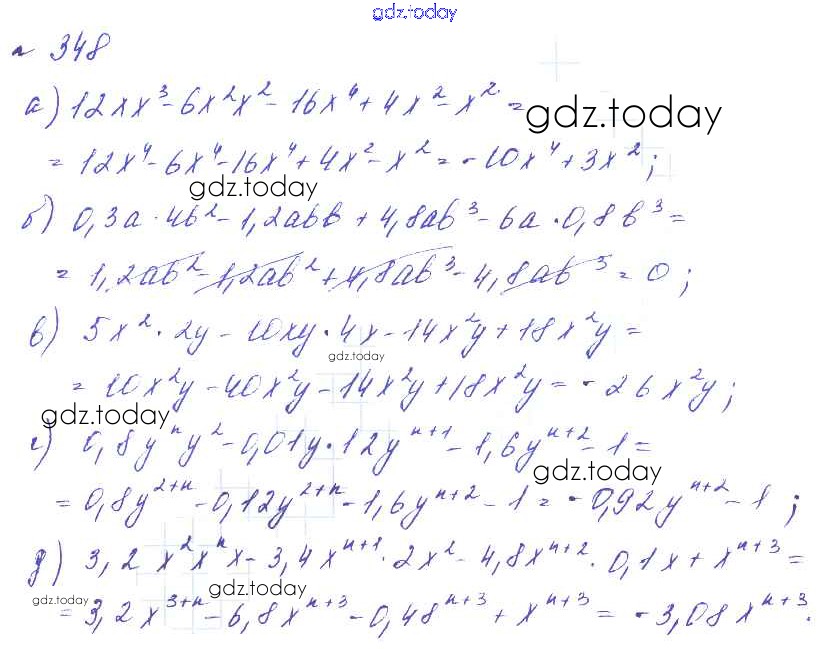 gdz.today
№ 348
а) 12xx³ - 6x²x² - 16x⁴ + 4x² - x² =
gdz.today
= 12x⁴ - 6x⁴ - 16x⁴ + 4x² - x² = -10x⁴ + 3x²;
gdz.today
б) 0,3a · 4b² - 1,2abb + 4,8ab³ - 6a · 0,8b³ =
= 1,2ab² - 1,2ab² + 4,8ab³ - 4,8ab³ = 0;
в) 5x² · 2y - 10xy · 4x - 14x²y + 18x²y =
gdz.today
= 10x²y - 40x²y - 14x²y + 18x²y = -26x²y;
gdz.today
г) 0,8yⁿy² - 0,01y · 12yⁿ⁺¹ - 1,6yⁿ⁺² - 1 =
gdz.today
= 0,8y²⁺ⁿ - 0,12y²⁺ⁿ - 1,6yⁿ⁺² - 1 = -0,92yⁿ⁺² - 1;
д) 3,2x²xⁿx - 3,4xⁿ⁺¹ · 2x² - 4,8xⁿ⁺² · 0,1x + xⁿ⁺³ =
gdz.today
gdz.today
= 3,2x³⁺ⁿ - 6,8xⁿ⁺³ - 0,48ⁿ⁺³ + xⁿ⁺³ = -3,08xⁿ⁺³.